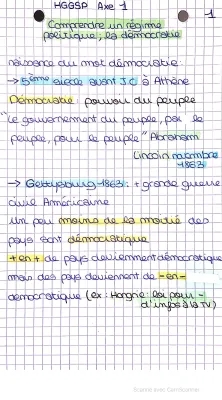 HGGSP Axe 1
1
Comprendre un régime
politique, la démocratie
naissance du mot démocratie
→ 5ème siècle avant JC à Athène
Démocratie : pouvoir du peuple
"Le gouvernement du peuple, par le
peuple, pour le peuple" Abraham
Lincoln novembre
1863
→ Gettysburg 1863 : + grande guerre
civile Américaine
Un peu moins de la moitié des
pays sont démocratique
+ en + de pays deviennent démocratique
mais des pays deviennent de - en -
démocratique (ex : Hongrie : loi pour -
d'infos à la TV)
Scanné avec CamScanner